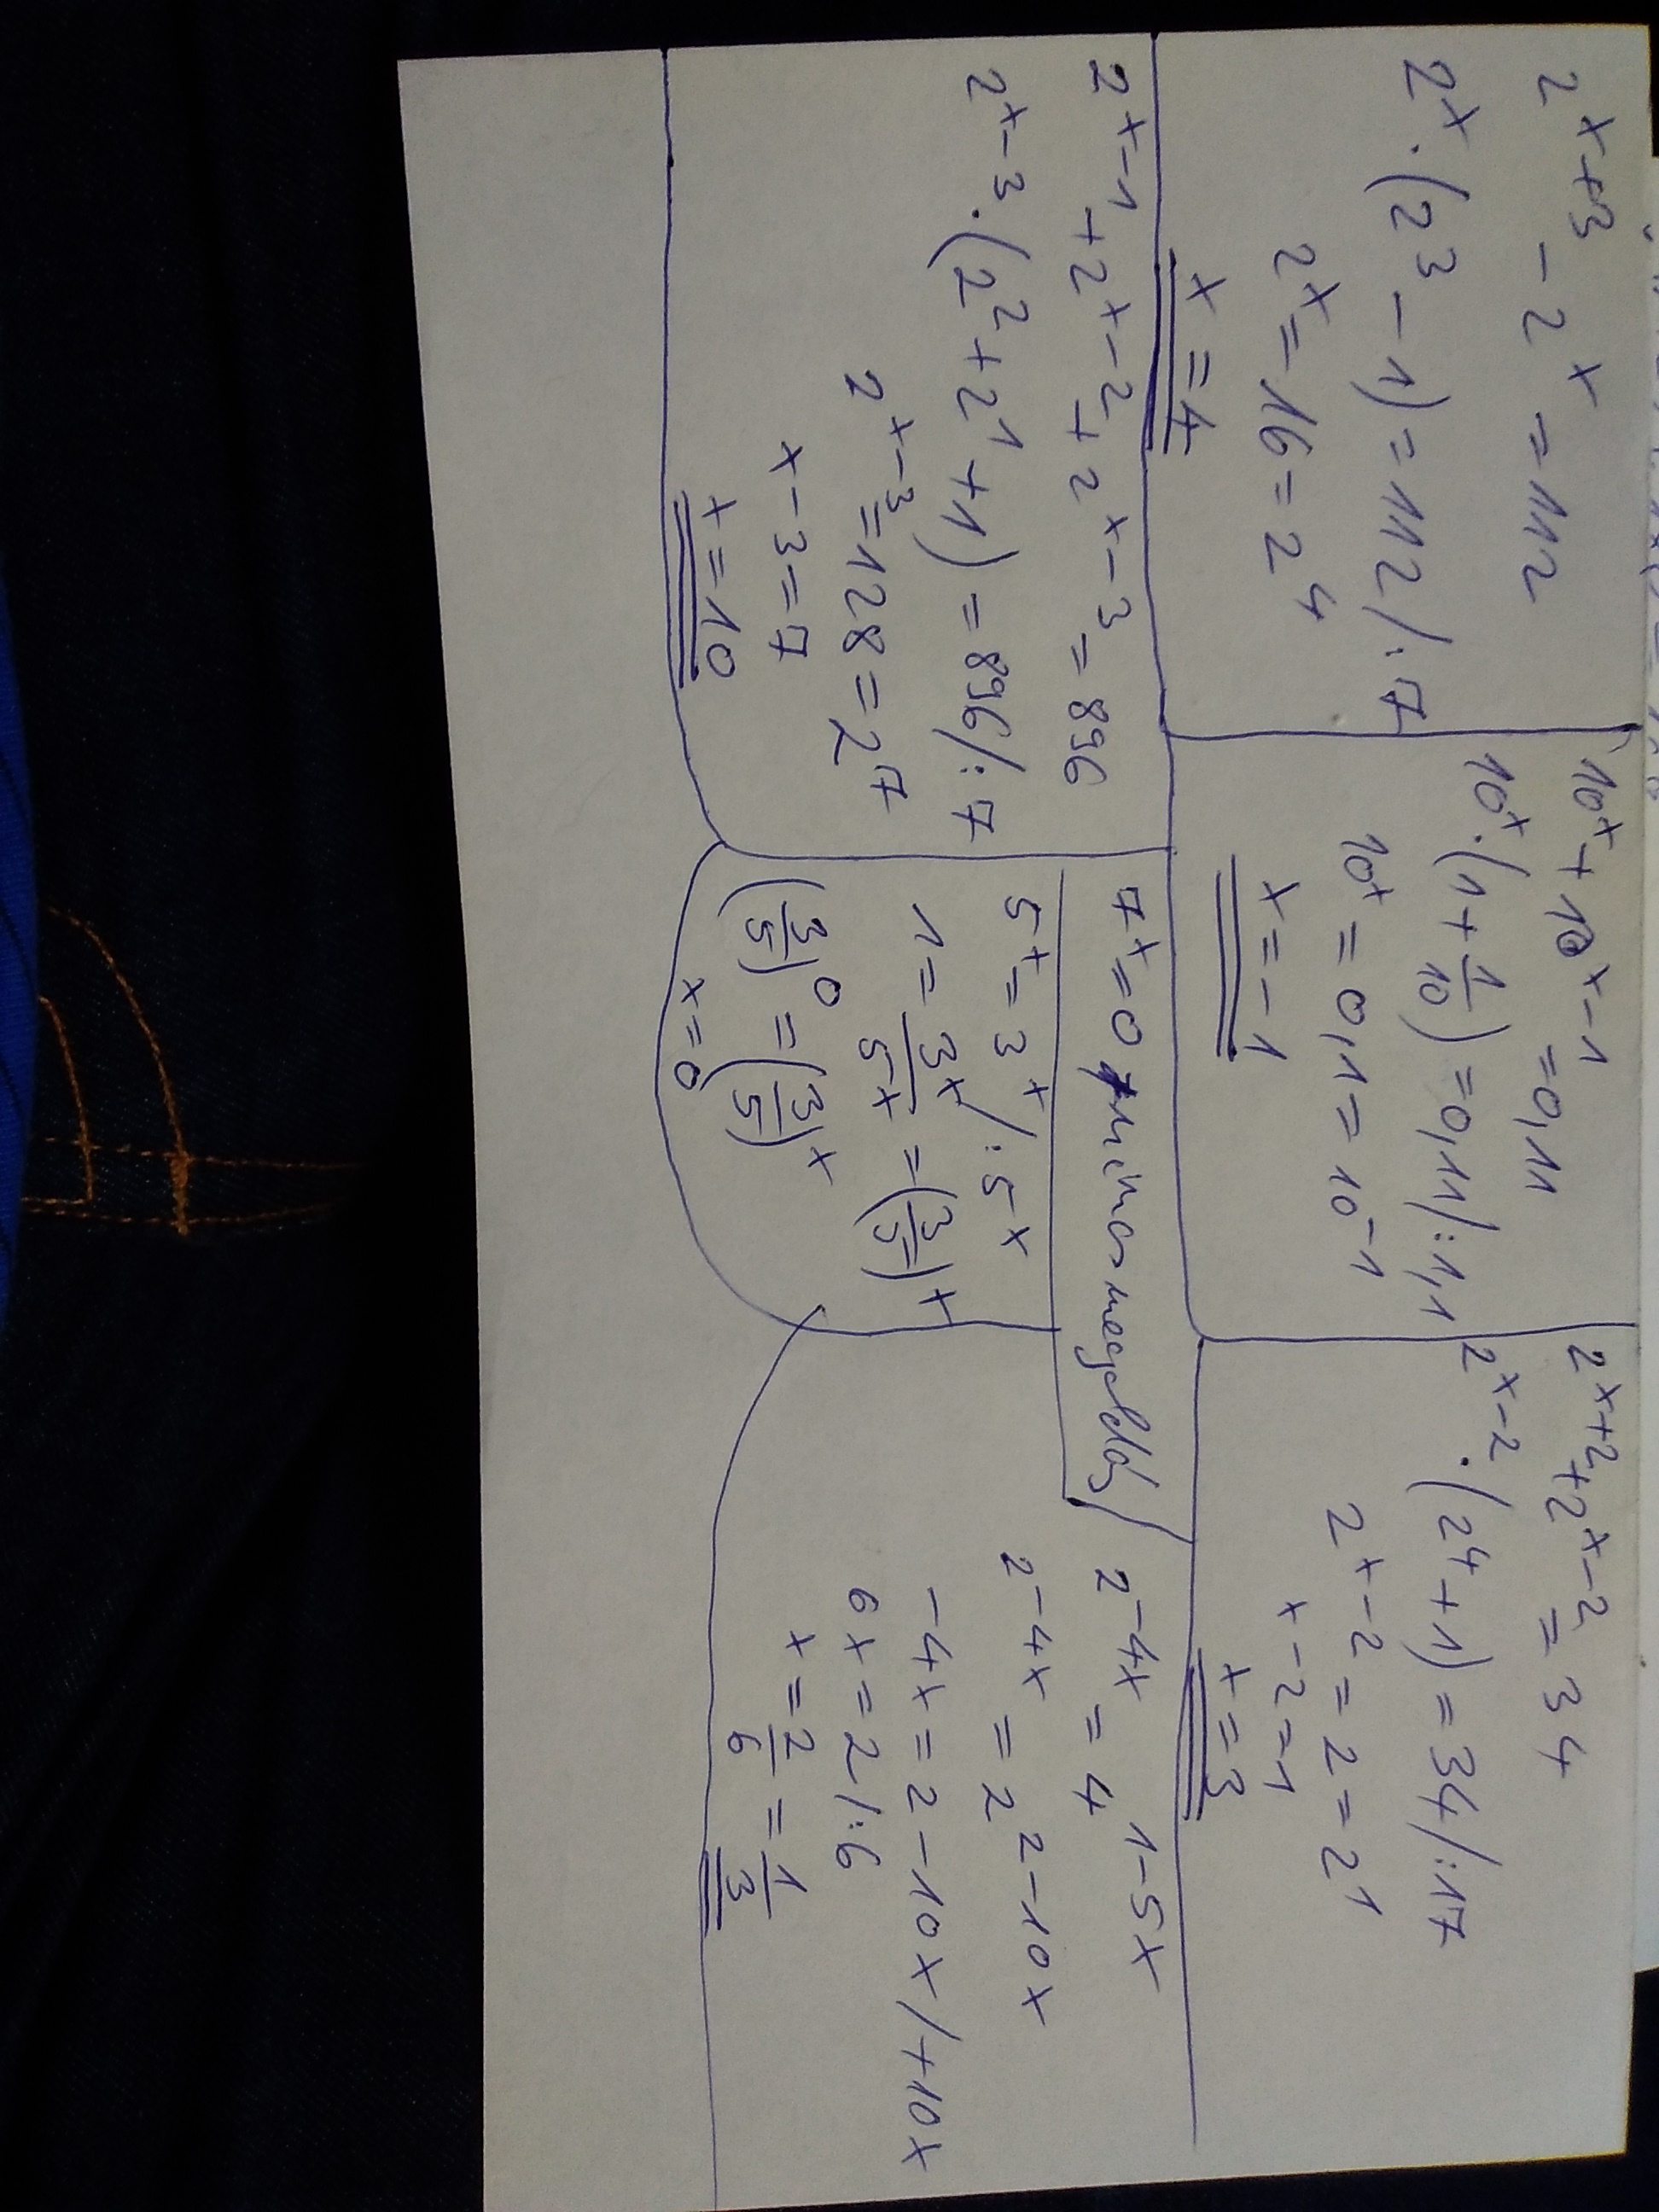 2^(x+3) - 2^x = 112
2^x · (2^3 - 1) = 112 /:7
2^x = 16 = 2^4
x = 4
10^x + 10^(x-1) = 0,11
10^x · (1 + 1/10) = 0,11 /:1,1
10^x = 0,1 = 10^(-1)
x = -1
2^(x+2) + 2^(x-2) = 34
2^(x-2) · (2^4 + 1) = 34 /:17
2^(x-2) = 2 = 2^1
x - 2 = 1
x = 3
2^(x-1) + 2^(x-2) + 2^(x-3) = 896
2^(x-3) · (2^2 + 2^1 + 1) = 896 /:7
2^(x-3) = 128 = 2^7
x - 3 = 7
x = 10
7^x = 0 nincs megoldás
5^x = 3^x /:5^x
1 = 3^x/5^x = (3/5)^x
(3/5)^0 = (3/5)^x
x = 0
2^(-4x) = 4^(1-5x)
2^(-4x) = 2^(2-10x)
-4x = 2 - 10x /+10x
6x = 2 /:6
x = 2/6 = 1/3